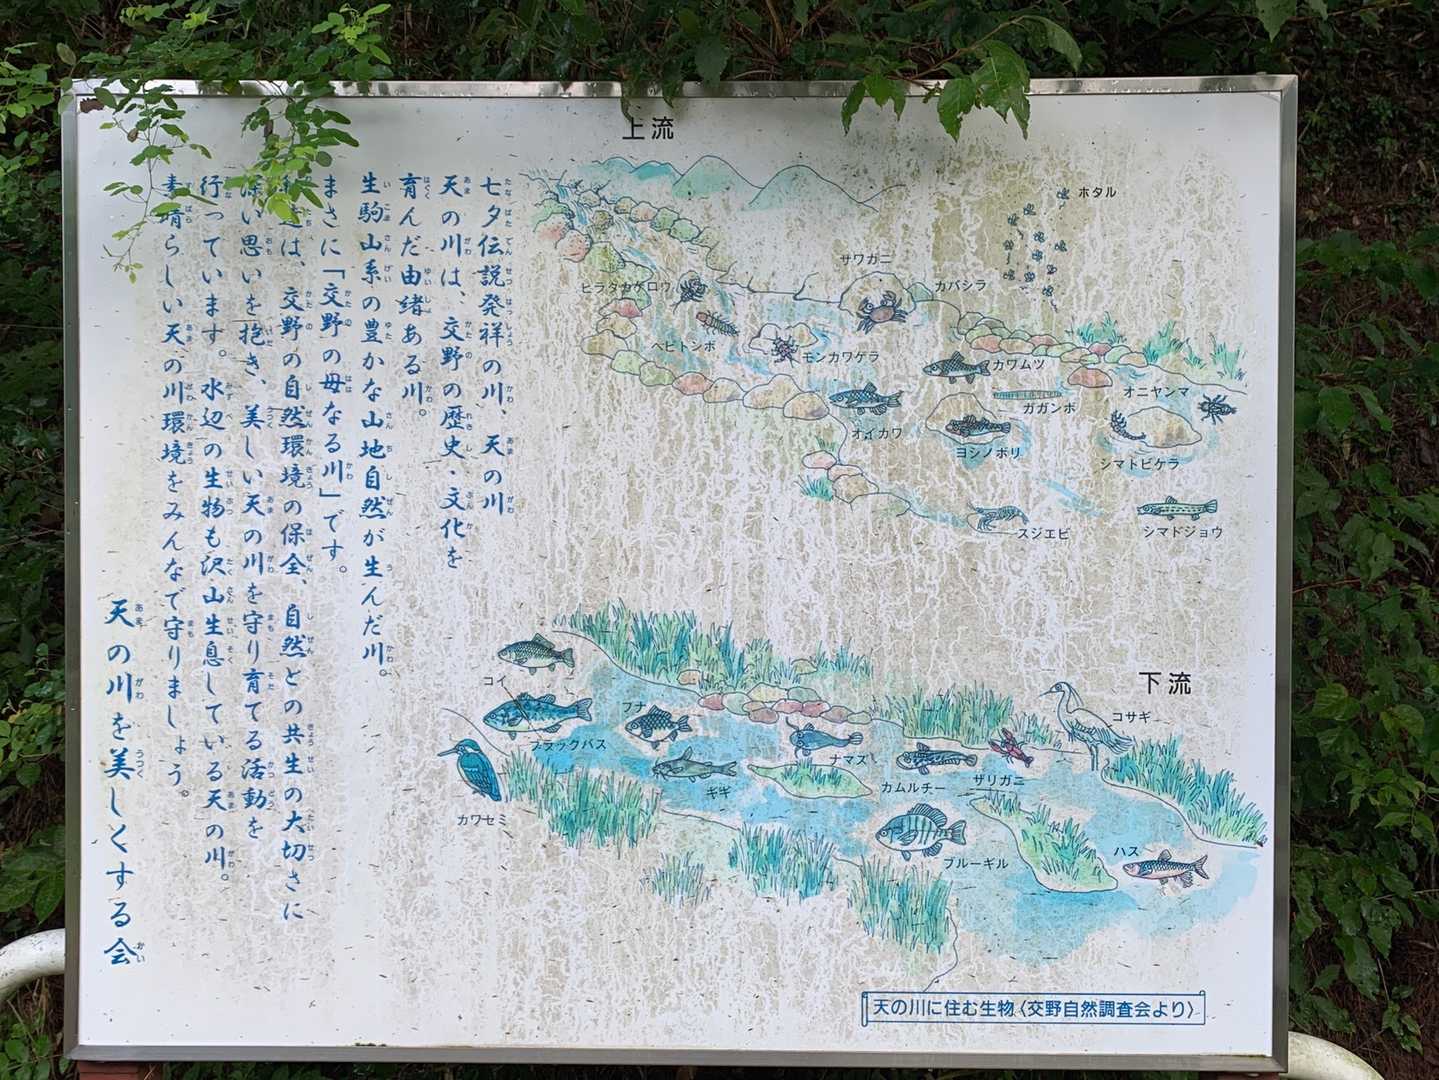 七夕伝説発祥の川、天の川
天の川は、交野の歴史・文化を
育んだ由緒ある川。
生駒山系の豊かな山地自然が生んだ川。
まさに「交野の母なる川」です。
は、交野の自然環境の保全、自然との共生の大切さに
深い思いを抱き、美しい天の川を守り育てる活動を
行っています。水辺の生物も沢山生息している天の川。
素晴らしい天の川環境をみんなで守りましょう。
天の川を美しくする会
上流
ホタル
サワガニ
ヒラタカゲロウ
カバシラ
ヘビトンボ
モンカワゲラ
カワムツ
オニヤンマ
ガガンボ
オイカワ
ヨシノボリ
シマトビケラ
スジエビ
シマドジョウ
下流
コイ
フナ
コサギ
ブラックバス
ナマズ
ギギ
カムルチー
ザリガニ
カワセミ
ブルーギル
ハス
天の川に住む生物〈交野自然調査会より〉